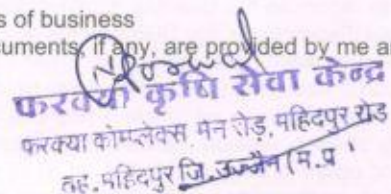 s of business
cuments, if any, are provided by me a
फरक्या कृषि सेवा केन्द्र
फरक्या कोम्प्लेक्स मेन रोड, महिदपुर रोड
तह. महिदपुर जि. उज्जैन (म.प्र